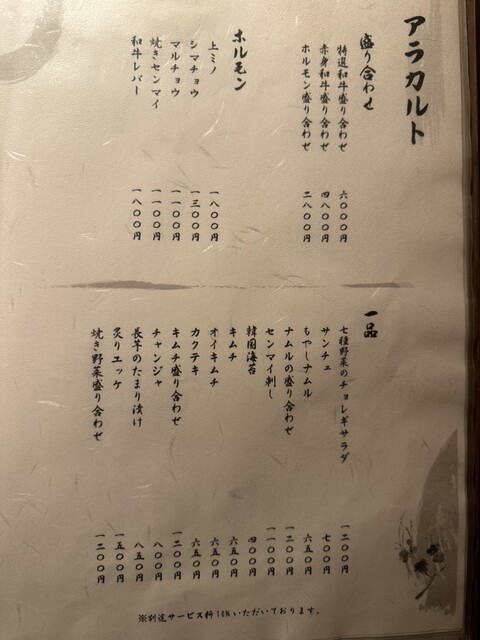 アラカルト
盛り合わせ
特選和牛盛り合わせ 六〇〇〇円
赤身和牛盛り合わせ 四八〇〇円
ホルモン盛り合わせ 二八〇〇円
ホルモン
上ミノ 一八〇〇円
シマチョウ 一三〇〇円
マルチョウ 一一〇〇円
焼きセンマイ 一一〇〇円
和牛レバー 一八〇〇円
一品
七種野菜のチョレギサラダ 一二〇〇円
サンチュ 七〇〇円
もやしナムル 六五〇円
ナムルの盛り合わせ 一二〇〇円
センマイ刺し 一一〇〇円
韓国海苔 四〇〇円
キムチ 六五〇円
オイキムチ 六五〇円
カクテキ 六五〇円
キムチ盛り合わせ 一二〇〇円
チャンジャ 八〇〇円
長芋のたまり漬け 八五〇円
炙りエッケ 一五〇〇円
焼き野菜盛り合わせ 一二〇〇円
※別途サービス料10%いただいております。